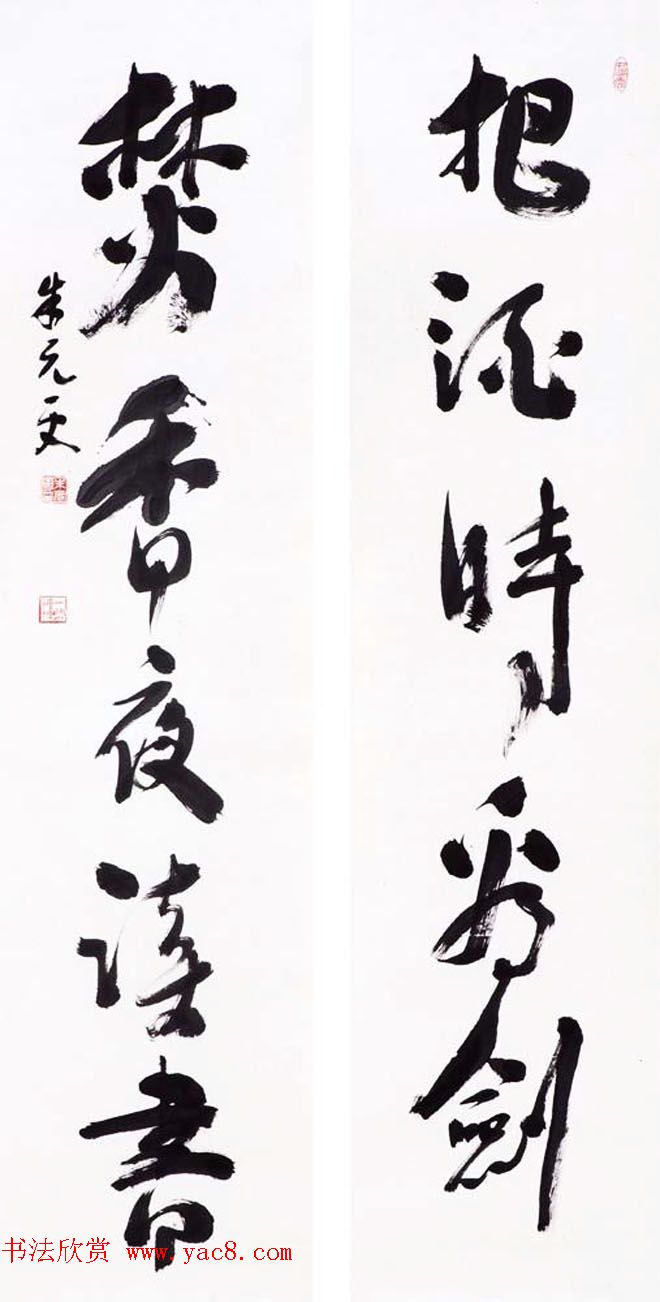 把酒時看劍
焚香夜讀書
朱元更
书法欣赏 www.yac8.com